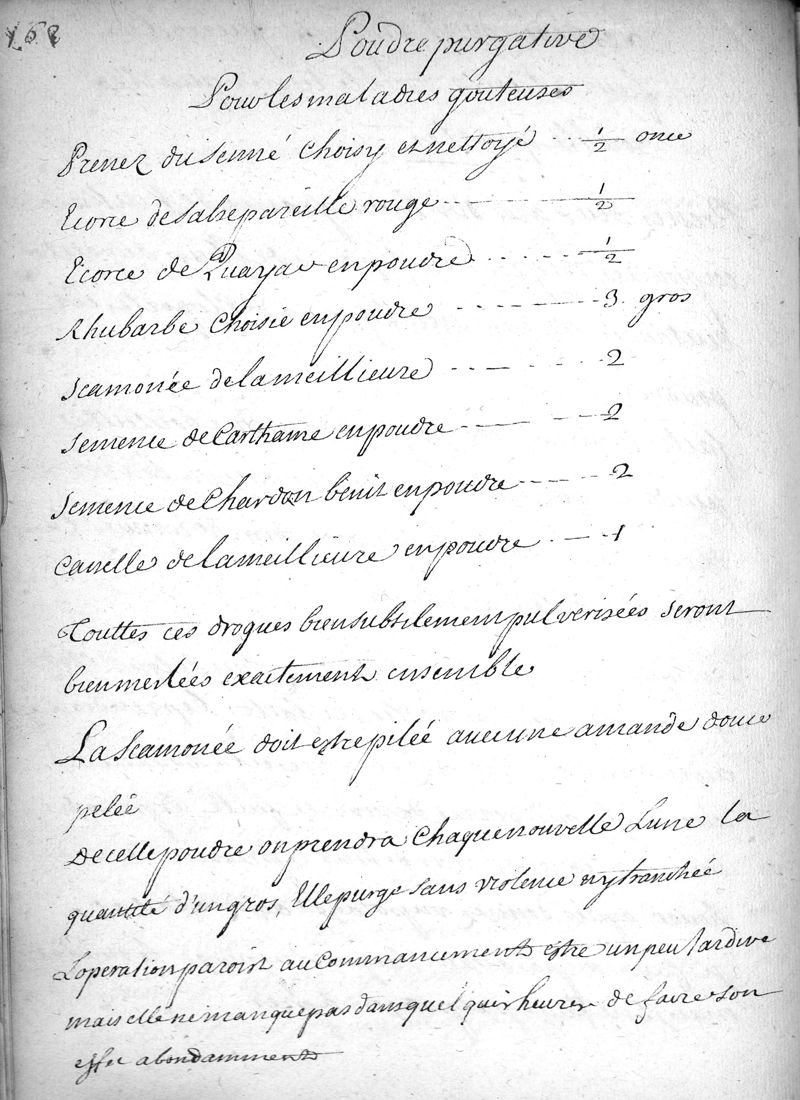 168
Poudre purgative
Pour les maladies gouteuses
Prenez du senné choisy et nettoyé ... 1/2 once
Ecorce de salsepareille rouge ... 1/2
Ecorce de Guayac en poudre ... 1/2
Rhubarbe choisie en poudre ... 3 gros
scamonée de la meillieure ... 2
semence de Carthame en poudre ... 2
semence de Chardon benit en poudre ... 2
canelle de la meillieure en poudre ... 1
Touttes ces drogues bien subtilement pulverisées seront
bien meslées exactement ensemble
La scamonée doit estre pilée avec une amande douce
pelée
De celle poudre on prendra chaque nouvelle Lune la
quantité d'un gros, Elle purge sans violence ny tranchée
L'operation paroist au commancement estre un peu tardive
mais elle ne manque pas dans quelques heures de faire son
effet abondamment